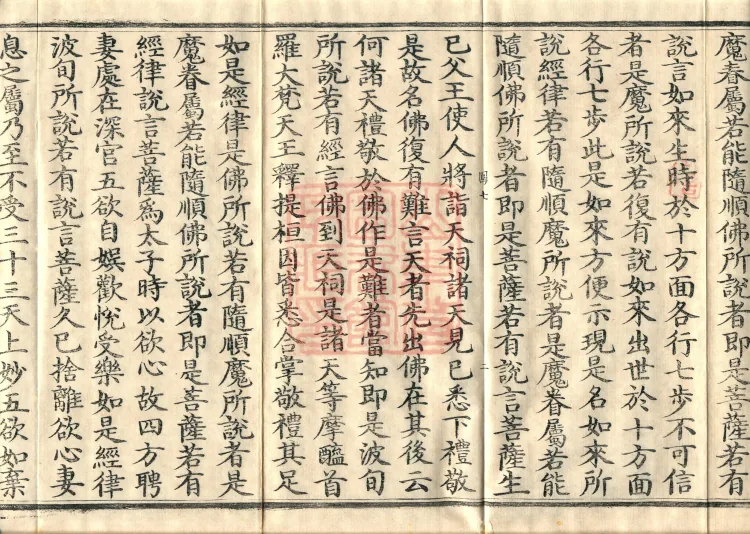 魔眷屬若能隨順佛所說者即是菩薩若有
說言如來生時於十方面各行七步不可信
者是魔所說若復有說如來出世於十方面
各行七步此是如來方便示現是名如來所
說經律若有隨順魔所說者是魔眷屬若能
隨順佛所說者即是菩薩若有說言菩薩生
七 二
已父王使人將詣天祠諸天見已悉下禮敬
是故名佛復有難言天者先出佛在其後云
何諸天禮敬於佛作是難者當知即是波旬
所說若有經言佛到天祠是諸天等摩醯首
羅大梵天王釋提桓因皆悉合掌敬禮其足
如是經律是佛所說若有隨順魔所說者是
魔眷屬若能隨順佛所說者即是菩薩若有
經律說言菩薩為太子時以欲心故四方聘
妻處在深宮五欲自娛歡悅受樂如是經律
波旬所說若有說言菩薩久已捨離欲心妻
息之屬乃至不受三十三天上妙五欲如棄